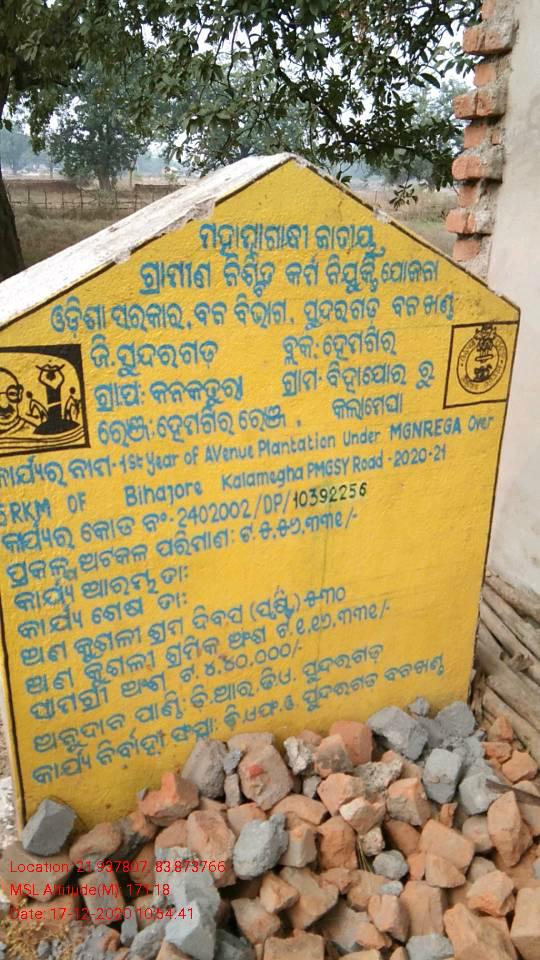 ମହାତ୍ମାଗାନ୍ଧୀ ଜାତୀୟ
ଗ୍ରାମୀଣ ନିଶ୍ଚିତ କର୍ମ ନିଯୁକ୍ତି ଯୋଜନା
ଓଡିଶା ସରକାର, ବନ ବିଭାଗ, ସୁନ୍ଦରଗଡ଼ ବନଖଣ୍ଡ
ଜି.ସୁନ୍ଦରଗଡ଼ ବ୍ଲକ: ହେମଗିର
ଗ୍ରାପ: କନକତୁରା ଗ୍ରାମ- ବିହାଯୋର ରୁ
ରେଞ୍ଜ: ହେମଗିର ରେଞ୍ଜ, କଲାମେଘା
କାର୍ଯ୍ୟର ନାମ- 1st year of AVenue Plantation Under MGNREGA Over
5RKM OF Bihajore Kalamegha PMGSY Road - 2020-21
କାର୍ଯ୍ୟର କୋଡ ନଂ- 2402002/DP/10392256
ପ୍ରକଳ୍ପ ଅଟକଳ ପରିମାଣ: ଟ.୫.୫୬.୩୩୧/-
କାର୍ଯ୍ୟ ଆରମ୍ଭ ତା:
କାର୍ଯ୍ୟ ଶେଷ ତା:
ଅଣ କୁଶଳୀ ଶ୍ରମ ଦିବସ (ସୃଷ୍ଟି) ୫୩୦
ଅଣ କୁଶଳୀ ଶ୍ରମିକ ଅଂଶ ଟ.୧.୧୬.୩୩୧/-
ସାମଗ୍ରୀ ଅଂଶ ଟ. ୪.୪୦.୦୦୦/-
ଅନୁଦାନ ପାଣ୍ଠି: ଡି.ଆର.ଡି.ଓ. ସୁନ୍ଦରଗଡ଼
କାର୍ଯ୍ୟ ନିର୍ବାହୀ ସଂସ୍ଥା: ଡି.ଏଫ.ଓ. ସୁନ୍ଦରଗଡ଼ ବନଖଣ୍ଡ
Location: 21.937807, 83.873766
MSL Altitude(M): 171.18
Date: 17-12-2020 10:54:41